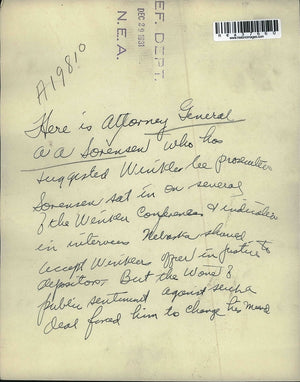 REF. DEPT.
DEC 29 1931
N. E. A.
A19810
Here is Attorney General
a a Sorensen who has
suggested Winkler be prosecuted
Sorensen sat in on several
of the Winkler Conferences & indicated
in interviews Nebraska should
accept Winklers offer in justice to
depositors. But the wave of
public sentiment against such a
deal forced him to change his mind